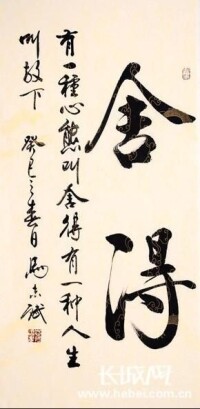 舍得
有一種心態叫舍得有一种人生
叫放下 癸巳之春日
长城网